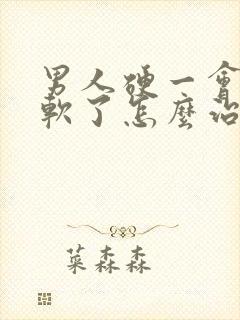 男人硬一會
軟了怎麼治
菜森森